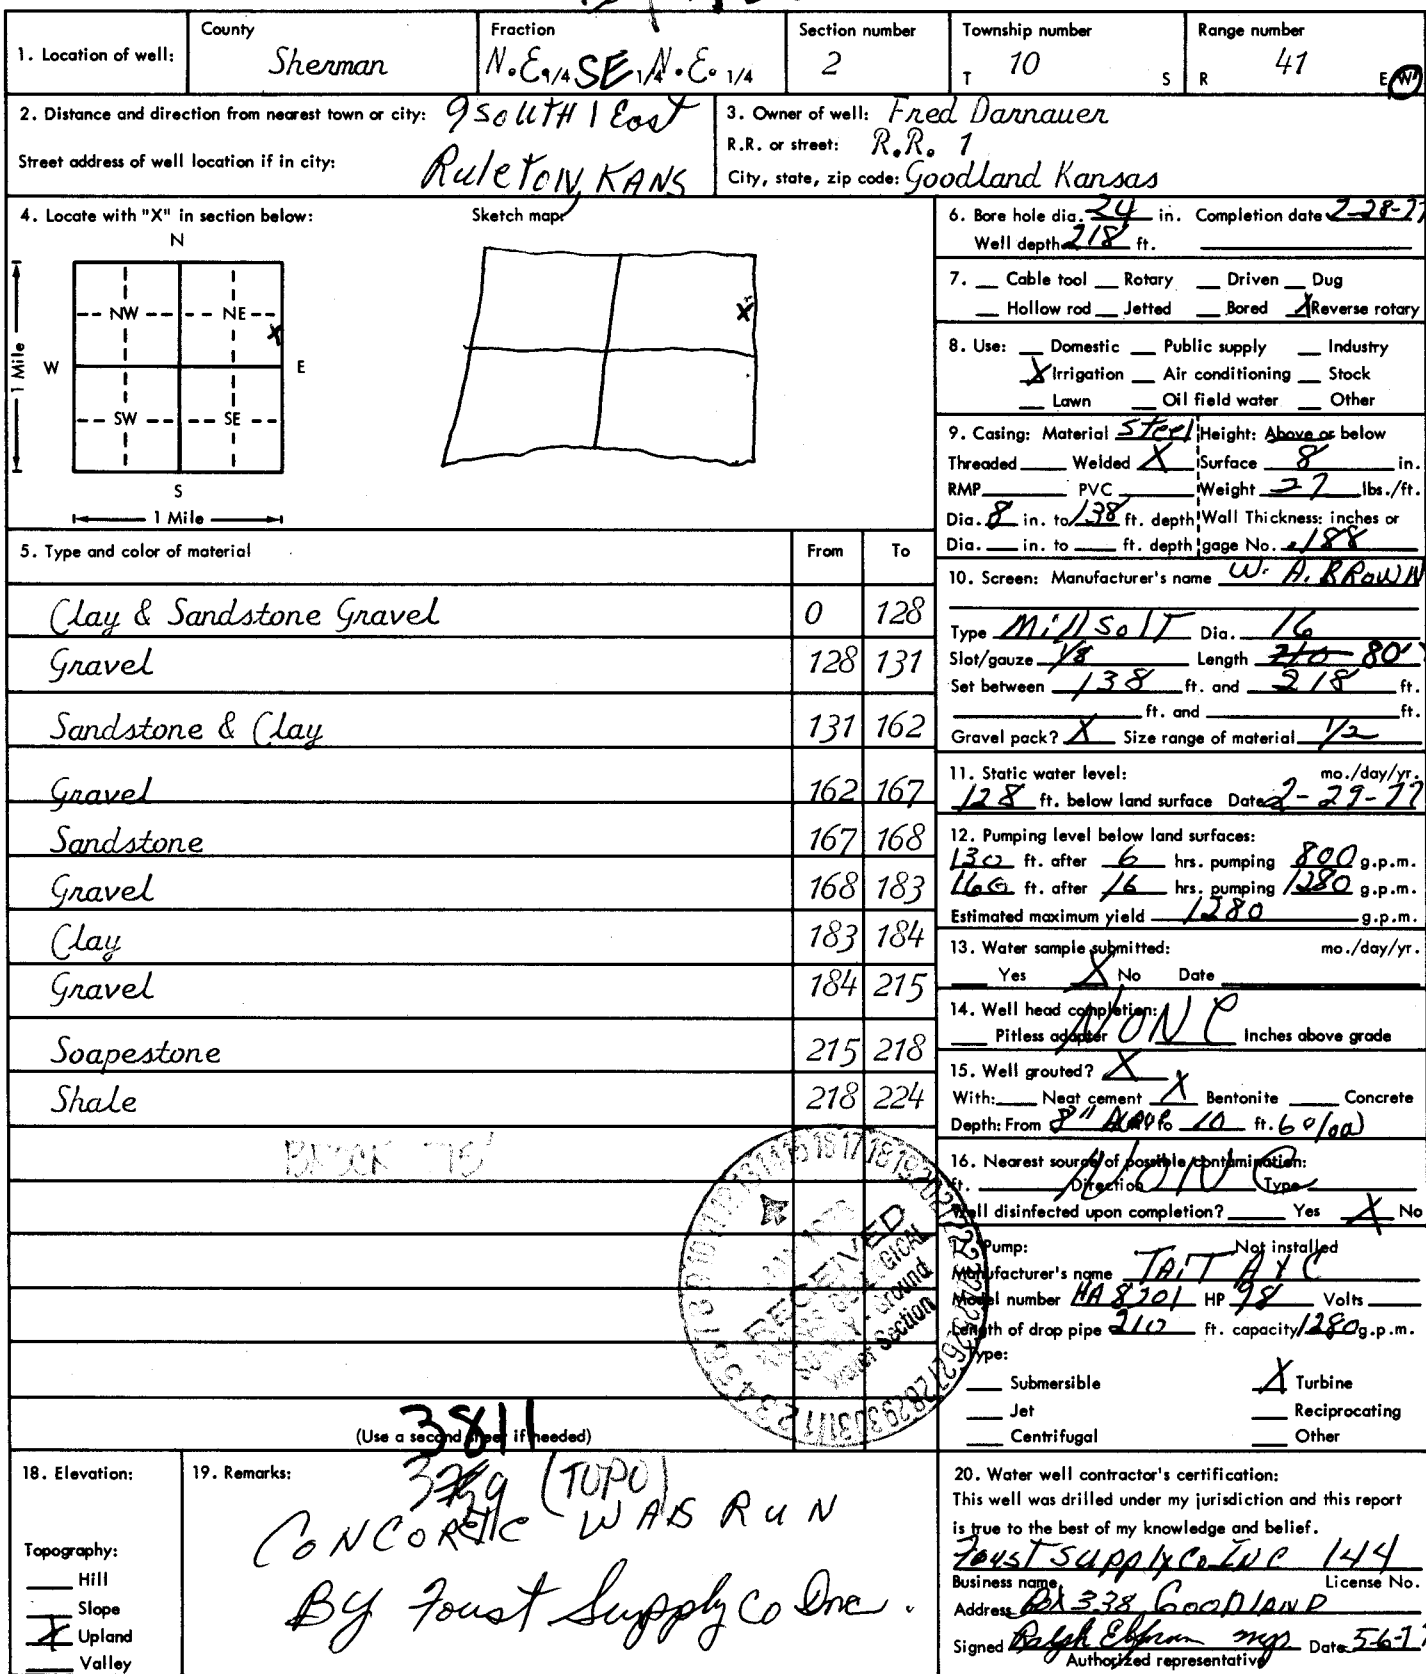 1. Location of well: County Sherman Fraction N.E. 1/4 SE 1/4 N.E. 1/4 Section number 2 Township number T 10 S Range number R 41 E W
2. Distance and direction from nearest town or city: 9 SOUTH 1 East
Street address of well location if in city: Ruleton, KANS
3. Owner of well: Fred Darnauer
R.R. or street: R.R. 1
City, state, zip code: Goodland Kansas
4. Locate with "X" in section below:
Sketch map:
N
NW NE
X
W E
1 Mile
SW SE
S
1 Mile
X
5. Type and color of material From To
Clay & Sandstone Gravel 0 128
Gravel 128 131
Sandstone & Clay 131 162
Gravel 162 167
Sandstone 167 168
Gravel 168 183
Clay 183 184
Gravel 184 215
Soapestone 215 218
Shale 218 224
RECEIVED
Ground
Water Section
(Use a second sheet if needed)
3811
(TOPO)
6. Bore hole dia. 24 in. Completion date 2-28-77
Well depth 218 ft.
7. __ Cable tool __ Rotary __ Driven __ Dug
__ Hollow rod __ Jetted __ Bored X Reverse rotary
8. Use: __ Domestic __ Public supply __ Industry
X Irrigation __ Air conditioning __ Stock
__ Lawn __ Oil field water __ Other
9. Casing: Material Steel Height: Above or below
Threaded __ Welded X Surface 8 in.
RMP __ PVC __ Weight 27 lbs./ft.
Dia. 8 in. to 138 ft. depth Wall Thickness: inches or
Dia. __ in. to __ ft. depth gage No. .188
10. Screen: Manufacturer's name W. A. BROWN
Type Mill Solt Dia. 16
Slot/gauze 1/8 Length 210 80'
Set between 138 ft. and 218 ft.
__ ft. and __ ft.
Gravel pack? X Size range of material 1/2
11. Static water level: mo./day/yr.
128 ft. below land surface Date 2-29-77
12. Pumping level below land surfaces:
130 ft. after 6 hrs. pumping 800 g.p.m.
160 ft. after 16 hrs. pumping 1280 g.p.m.
Estimated maximum yield 1280 g.p.m.
13. Water sample submitted: mo./day/yr.
__ Yes X No Date __
14. Well head completion: NONE
__ Pitless adapter __ Inches above grade
15. Well grouted? X
With: __ Neat cement X Bentonite __ Concrete
Depth: From 8" to 10 ft.
16. Nearest source of possible contamination: NONE
ft. __ Direction __ Type __
Well disinfected upon completion? __ Yes X No
17. Pump: Not installed
Manufacturer's name TAIT
Model number HA 8201 HP 98 Volts __
Length of drop pipe 210 ft. capacity 1280 g.p.m.
Type:
__ Submersible X Turbine
__ Jet __ Reciprocating
__ Centrifugal __ Other
18. Elevation:
Topography:
__ Hill
__ Slope
X Upland
__ Valley
19. Remarks:
CONCORETE WAS RUN
By Foust Supply Co Inc.
20. Water well contractor's certification:
This well was drilled under my jurisdiction and this report
is true to the best of my knowledge and belief.
Foust Supply Co INC 144
Business name License No.
Address BOX 338 GOODLAND
Signed Ralph mgr Date 5-6-77
Authorized representative